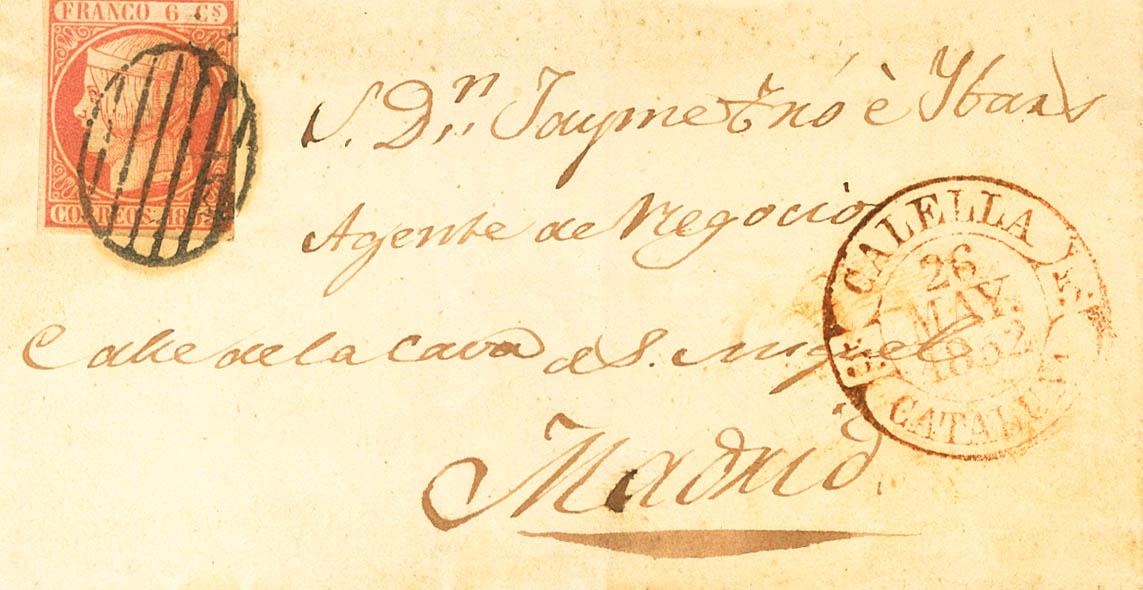 FRANCO 6 Cs
CORREOS. 18
S. Dn. Jayme è Ybars
Agente de Negocios
Calle de la Cava de S. Miguel
Madrid
CALELLA
26
MAY.
1852
CATALUÑA